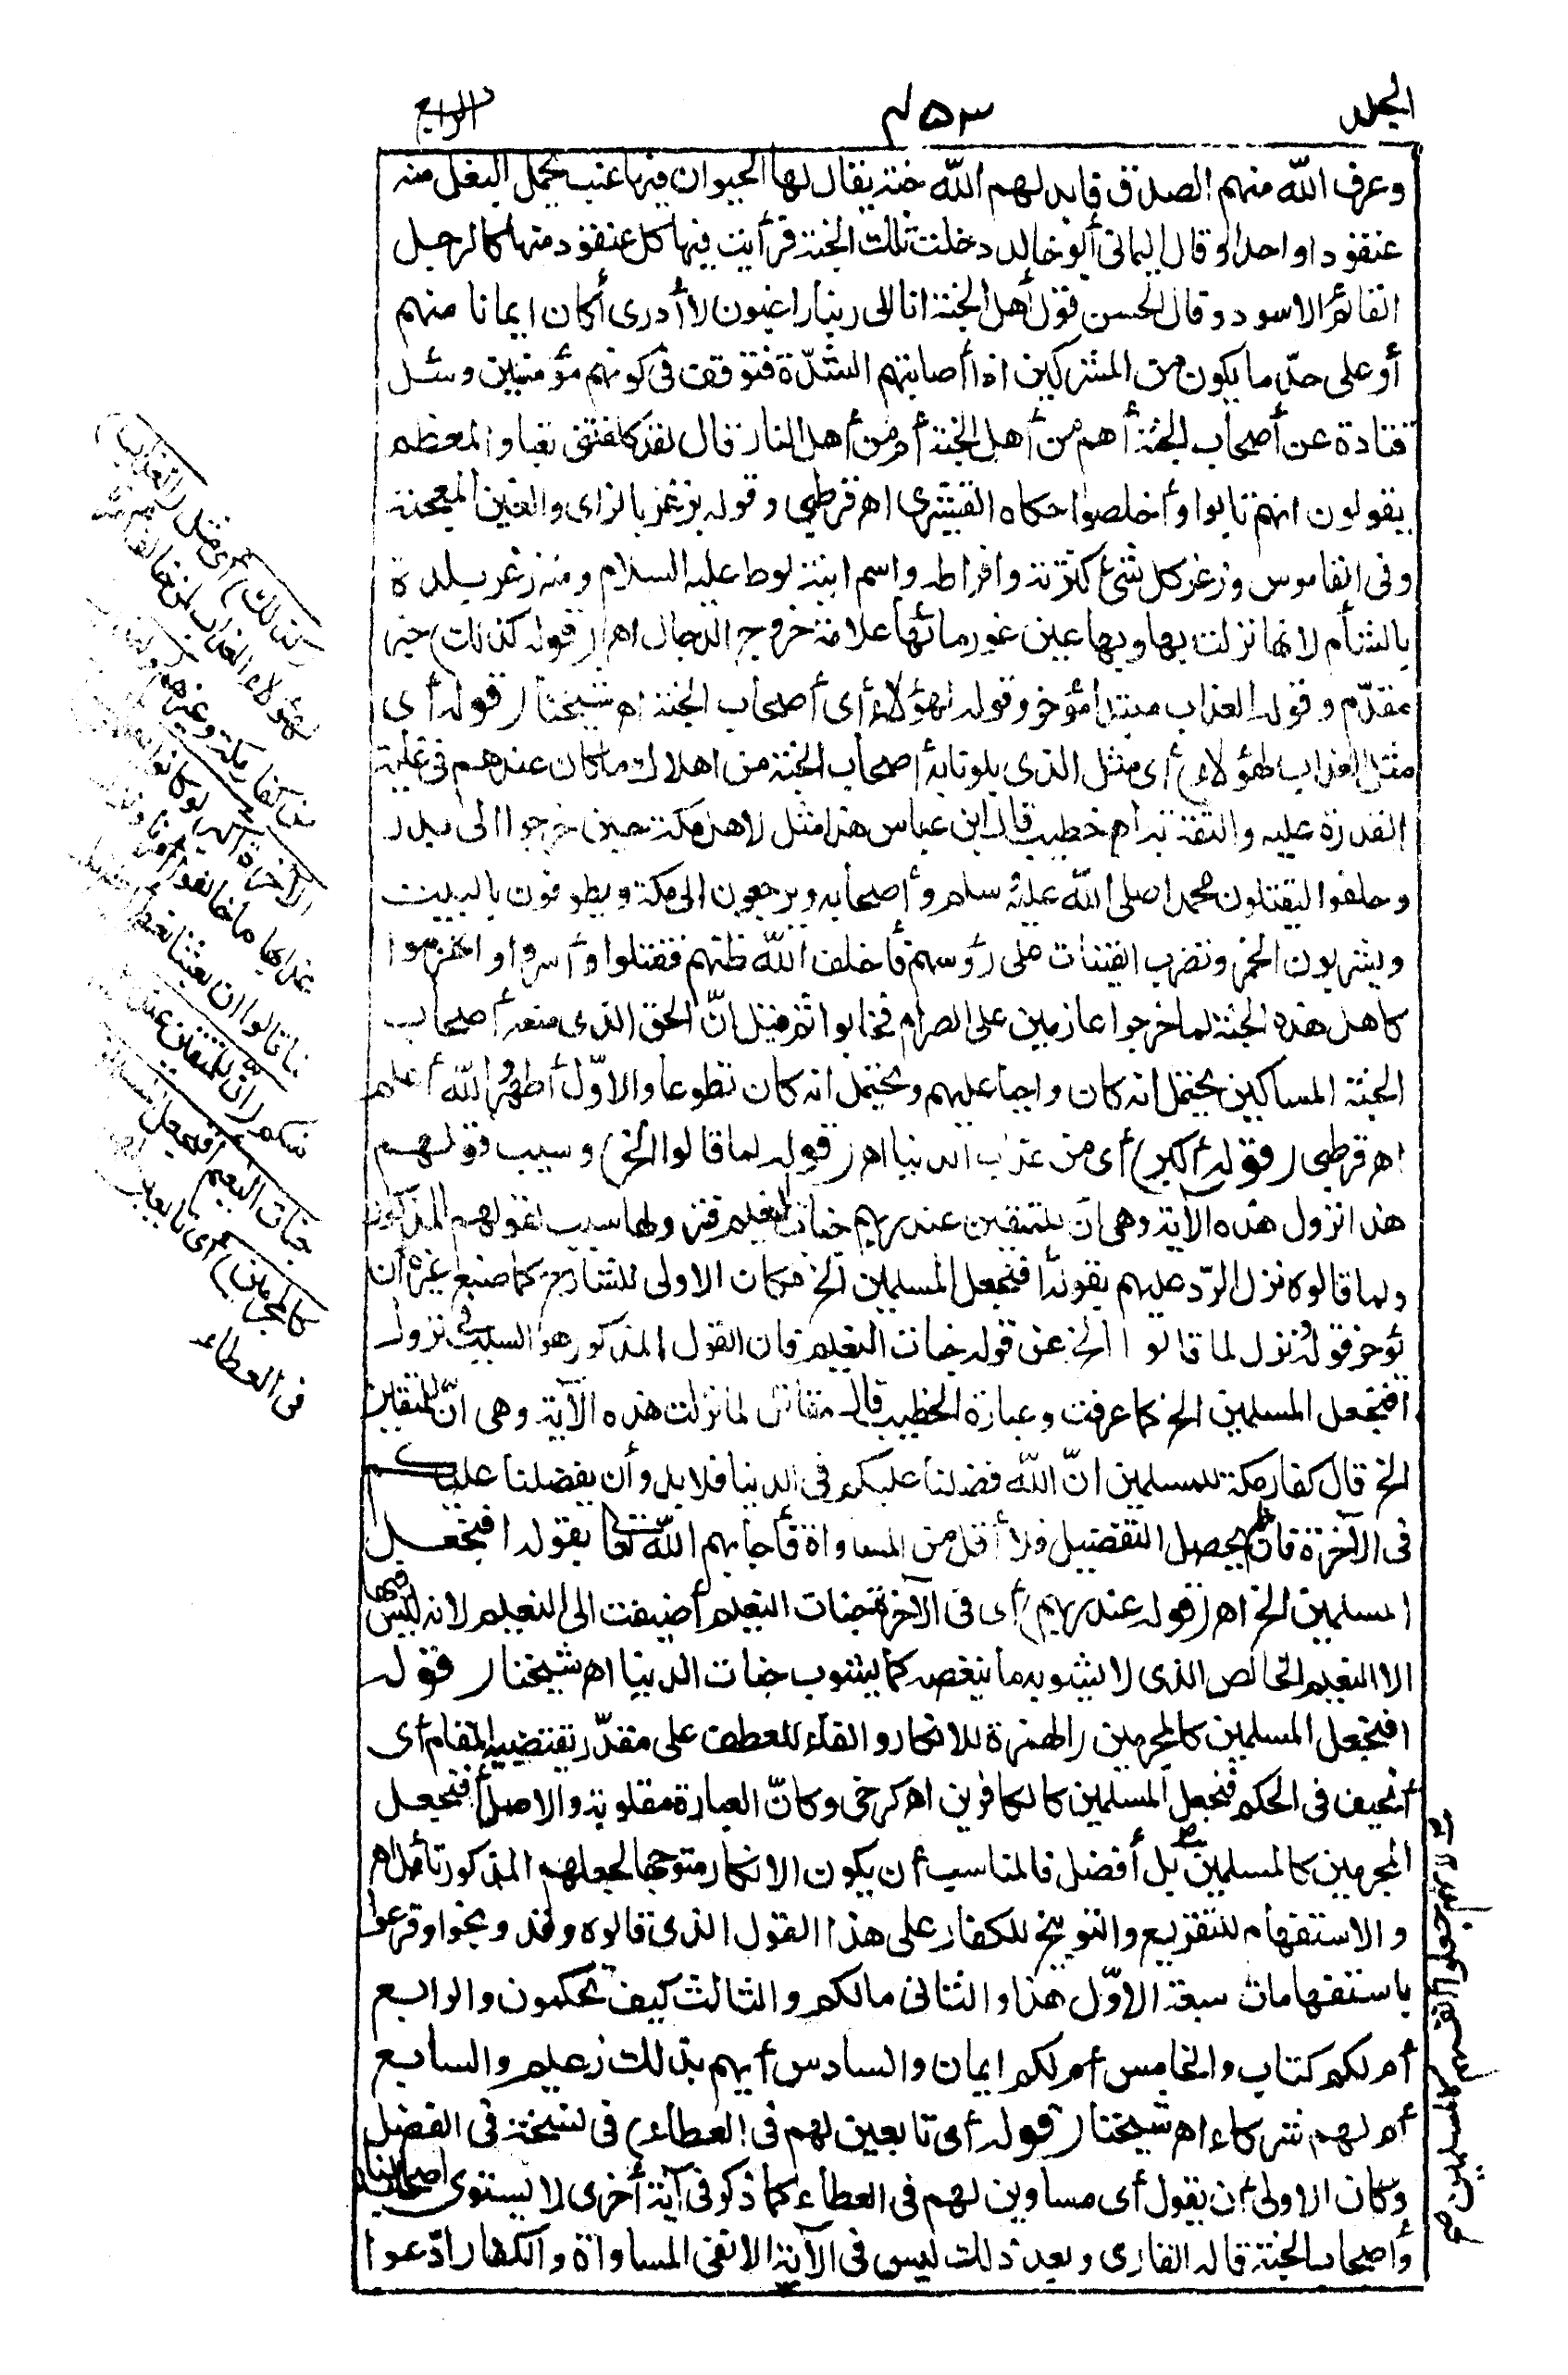 الجلد
٤٥٣
الرابع
وعرف الله منهم الصدق فابدلهم الله جنة يقال لها الحيوان فيها عنب يحمل البغل منه
عنقودا واحدا وقال اليمانى أبو خالد دخلت تلك الجنة فرأيت فيها كل عنقود منها كالرجل
القائم الاسود وقال الحسن قول أهل الجنة انا الى ربنا راغبون لا أدرى أكان ايمانا منهم
أو على حدّ ما يكون من المشركين اذا أصابتهم الشدّة فتوقف فى كونهم مؤمنين وسئل
قتادة عن أصحاب الجنة أهم من أهل الجنة أم من أهل النار قال لقد كلفتنى تعبا والمعظم
يقولون انهم تابوا وأخلصوا حكاه القشيرى اهـ قرطبى وقوله بزغر بالزاى والغين المعجمة
وفى القاموس وزغر كل شئ كثرته وافراطه واسم ابنة لوط عليه السلام ومنه زغر بلدة
بالشأم لانها نزلت بها وبها عين غور مائها علامة خروج الدجال اهـ (قوله كذلك) خبر
مقدّم وقوله العذاب مبتدأ مؤخر وقوله لهؤلاء أى أصحاب الجنة اهـ شيخنا (قوله أى
مثل العذاب لهؤلاء) أى مثل الذى بلونا به أصحاب الجنة من اهلاك ما كان عندهم فى غاية
القدرة عليه والثقة به اهـ خطيب قال ابن عباس هذا مثل لاهل مكة حين خرجوا الى بدر
وحلفوا ليقتلون محمدا صلى الله عليه وسلم وأصحابه ويرجعون الى مكة ويطوفون بالبيت
ويشربون الخمر وتضرب القينات على رؤسهم فأخلف الله ظنهم فقتلوا وأسروا وانهزموا
كاهل هذه الجنة لما خرجوا عازمين على الصرام فخابوا ثم قيل انّ الحق الذى منعه أصحاب
الجنة المساكين يحتمل انه كان واجبا عليهم ويحتمل انه كان تطوعا والاوّل أظهر والله أعلم
اهـ قرطبى (قوله أكبر) أى من عذاب الدنيا اهـ (قوله لما قالوا الخ) وسبب قولهم
هذا نزول هذه الآية وهى انّ للمتقين عند ربهم جنات النعيم فنزولها سبب لقولهم المذكور
ولما قالوه نزل الردّ عليهم بقوله أفنجعل المسلمين الخ فكان الاولى للشارح كما صنع غيره أن
يؤخر قوله نزل لما قالوا الخ عن قوله جنات النعيم فان القول المذكور هو السبب فى نزول
أفنجعل المسلمين الخ كما عرفت وعبارة الخطيب قال مقاتل لما نزلت هذه الآية وهى انّ للمتقين
الخ قال كفار مكة للمسلمين انّ الله فضلنا عليكم فى الدنيا فلا بد وأن يفضلنا عليكم
فى الآخرة فان لم يحصل التفضيل فلا أقل من المساواة فأجابهم الله تعالى بقوله أفنجعل
المسلمين الخ اهـ (قوله عند ربهم) أى فى الآخرة جنات النعيم أضيفت الى النعيم لانه ليس فيها
الا النعيم الخالص الذى لا يشوبه ما ينغصه كما يشوب جنات الدنيا اهـ شيخنا (قوله
أفنجعل المسلمين كالمجرمين) الهمزة للانكار والفاء للعطف على مقدّر يقتضيه المقام أى
أنحيف فى الحكم فنجعل المسلمين كالكافرين اهـ كرخى وكانّ العبارة مقلوبة والاصل أفنجعل
المجرمين كالمسلمين بل أفضل فالمناسب أن يكون الانكار متوجها لجعلهم المذكور تأمل اهـ
والاستفهام للتقريع والتوبيخ للكفار على هذا القول الذى قالوه وقد وبخوا وقرعوا
باستفهامات سبعة الاوّل هذا والثانى مالكم والثالث كيف تحكمون والرابع
أم لكم كتاب والخامس أم لكم ايمان والسادس أيهم بذلك زعيم والسابع
أم لهم شركاء اهـ شيخنا (قوله أى تابعين لهم فى العطاء) فى نسخة فى الفضل
وكان الاولى أن يقول أى مساوين لهم فى العطاء كما ذكر فى آية أخرى لا يستوى أصحاب النار
وأصحاب الجنة قاله القارى وبعد ذلك ليس فى الآية الا نفى المساواة والكفار ادّعوا
(كذلك) أى مثل العذاب
لهؤلاء العذاب لمن خالف
من كفار مكة وغيرهم ولعذاب
الآخرة أكبر لو كانوا
عذابها ما خالفوا أمرنا ونزل
لما قالوا ان بعثنا نعطى أفضل
منكم انّ للمتقين عند
جنات النعيم أفنجعل
كالمجرمين) أى تابعين
فى العطاء